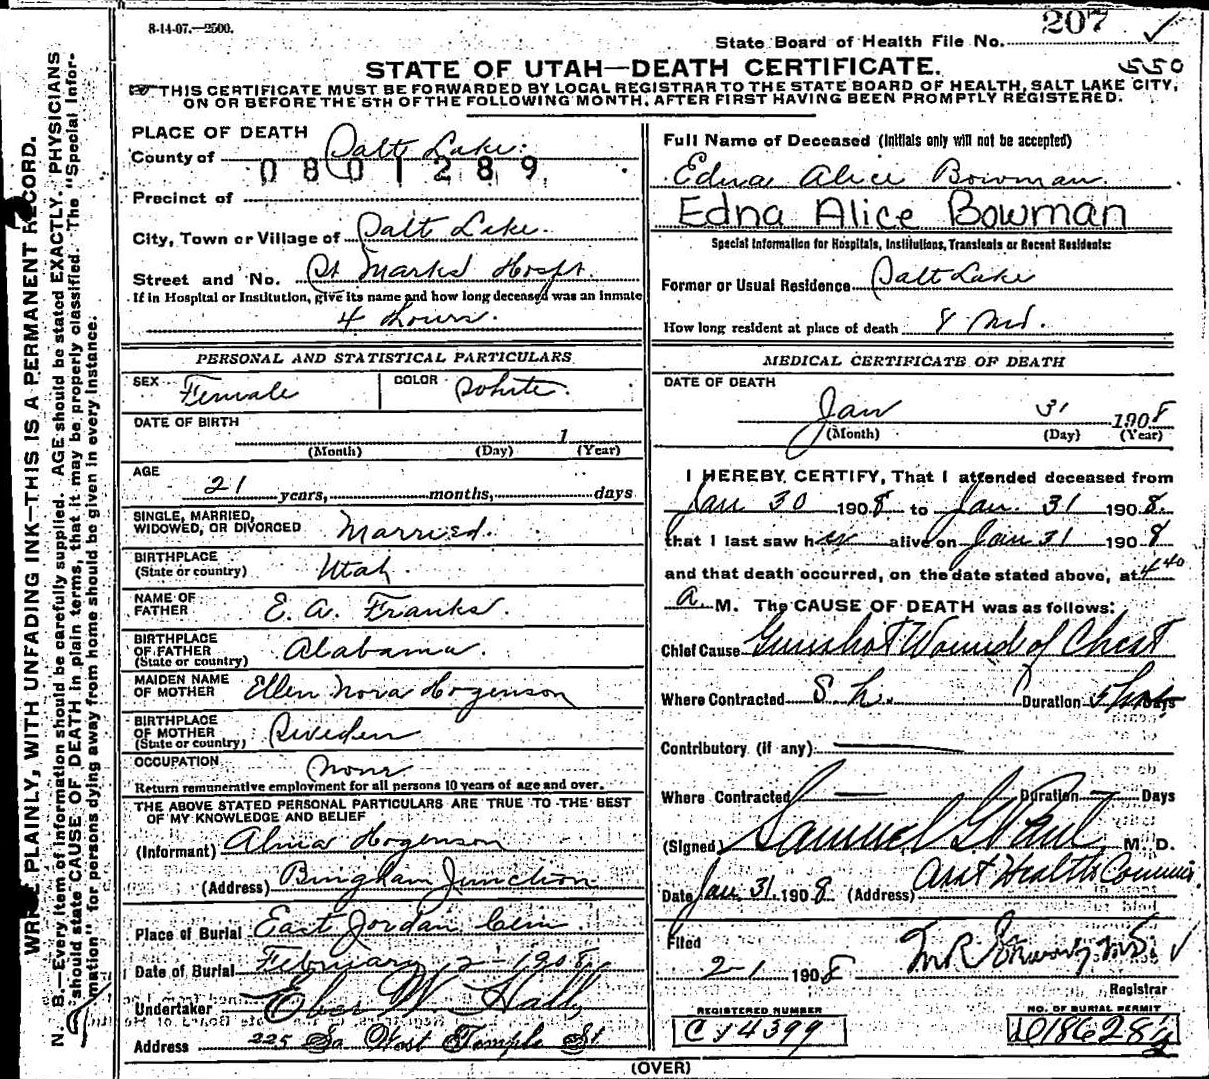 8-14-07.—2500.
207 ✓
State Board of Health File No.
550
STATE OF UTAH—DEATH CERTIFICATE.
THIS CERTIFICATE MUST BE FORWARDED BY LOCAL REGISTRAR TO THE STATE BOARD OF HEALTH, SALT LAKE CITY,
ON OR BEFORE THE 5TH OF THE FOLLOWING MONTH, AFTER FIRST HAVING BEEN PROMPTLY REGISTERED.
WRITE PLAINLY, WITH UNFADING INK—THIS IS A PERMANENT RECORD.
N. B.—Every item of information should be carefully supplied. AGE should be stated EXACTLY. PHYSICIANS
should state CAUSE OF DEATH in plain terms, that it may be properly classified. The "Special Infor-
mation" for persons dying away from home should be given in every instance.
PLACE OF DEATH
County of Salt Lake.
0801289
Precinct of
City, Town or Village of Salt Lake.
Street and No. St Marks Hospt.
If in Hospital or Institution, give its name and how long deceased was an inmate
4 hours.
PERSONAL AND STATISTICAL PARTICULARS
SEX Female COLOR White.
DATE OF BIRTH
1
(Month) (Day) (Year)
AGE
21 years, months, days
SINGLE, MARRIED,
WIDOWED, OR DIVORCED Married.
BIRTHPLACE
(State or country) Utah.
NAME OF
FATHER E. A. Franks.
BIRTHPLACE
OF FATHER
(State or country) Alabama.
MAIDEN NAME
OF MOTHER Ellen Nora Hogenson
BIRTHPLACE
OF MOTHER
(State or country) Sweden
OCCUPATION none
Return remunerative employment for all persons 10 years of age and over.
THE ABOVE STATED PERSONAL PARTICULARS ARE TRUE TO THE BEST
OF MY KNOWLEDGE AND BELIEF
(Informant) Alma Hogenson
(Address) Bingham Junction
Place of Burial East Jordan Cem.
Date of Burial February 2-1908,
Undertaker Eber W Hall
Address 225 So West Temple St
Full Name of Deceased (Initials only will not be accepted)
Edna Alice Bowman.
Edna Alice Bowman
Special Information for Hospitals, Institutions, Transients or Recent Residents:
Former or Usual Residence Salt Lake
How long resident at place of death 8 Mo.
MEDICAL CERTIFICATE OF DEATH
DATE OF DEATH
Jan 31 1908
(Month) (Day) (Year)
I HEREBY CERTIFY, That I attended deceased from
Jan 30 1908 to Jan. 31 1908.
that I last saw her alive on Jan 31 1908
and that death occurred, on the date stated above, at 4 40
a. M. The CAUSE OF DEATH was as follows:
Chief Cause Gunshot Wound of Chest
Where Contracted S. L. Duration 5 hrs Days
Contributory (if any)
Where Contracted — Duration — Days
(Signed) Samuel G Paul, M. D.
Date Jan 31. 1908 (Address) Asst Health Commis.
Filed
2-1 1908
Registrar
REGISTERED NUMBER
C 14399
NO. OF BURIAL PERMIT
D 18628½
(OVER)